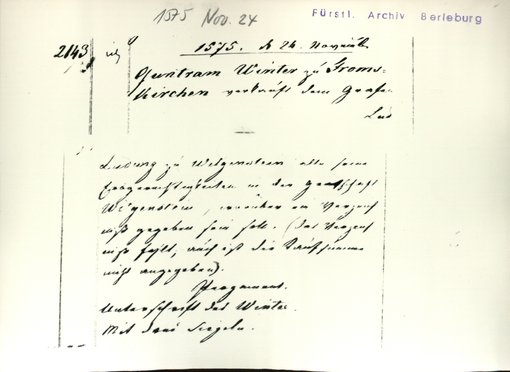 1575 Nov. 24
Fürstl. Archiv Berleburg
2143
1575. d 24. Novemb.
Guntram Winter zu Groms-
kirchen verkauft dem Grafen
Lud
Ludwig zu Witgenstein alle seine
Erbgerechtigkeiten in der Grafschaft
Witgenstein, worüber ein Verzeich
niß gegeben sein soll. (das Verzeich
niß fehlt, auch ist die Kaufsumme
nicht angegeben).
Pergament.
Unterschrift des Winter.
Mit drei Siegeln.